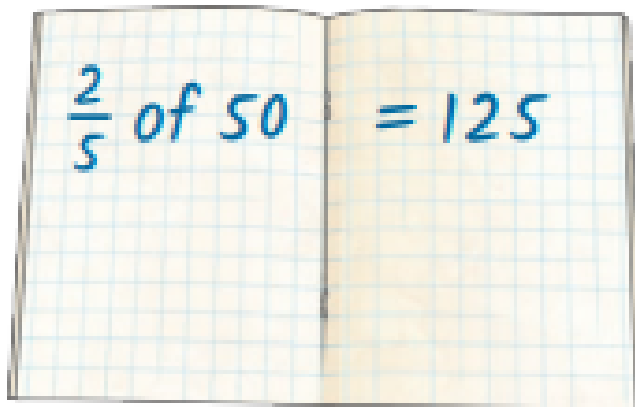 2/5 of 50 = 125